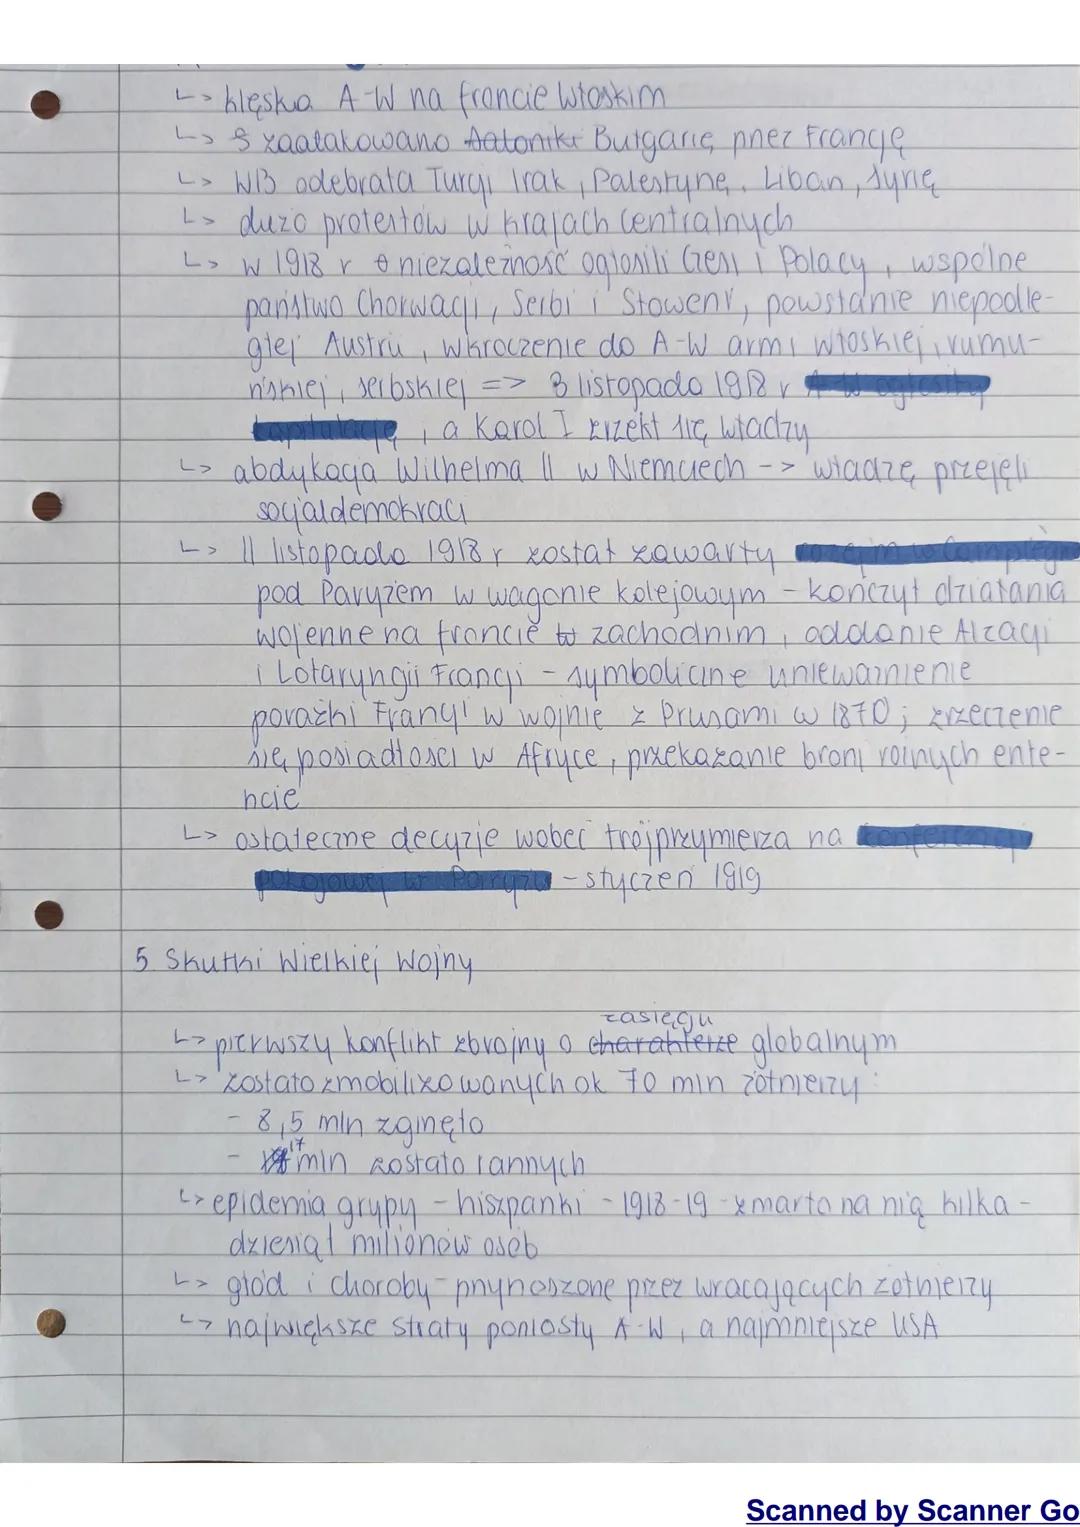 ↳ klęska A-W na froncie włoskim
↳ zaatakowano Bułgarię przez Francję
↳ WB odebrała Turcji Irak, Palestynę, Liban, Syrię
↳ dużo protestów w krajach centralnych
↳ w 1918 r niezależność ogłosili Czesi i Polacy, wspólne
państwo Chorwacji, Serbi i Słoweni, powstanie niepodle-
głej Austrii, wkroczenie do A-W armi włoskiej, rumu-
ńskiej, serbskiej => 3 listopada 1918 r A-W ogłosiły
kapitulację, a Karol I zrzekł się władzy
↳ abdykacja Wilhelma II w Niemczech -> władzę przejęli
socjaldemokraci
↳ 11 listopada 1918 r został zawarty rozejm w Compiegn
pod Paryżem w wagonie kolejowym - kończył działania
wojenne na froncie zachodnim, oddanie Alzacji
i Lotaryngii Francji - symboliczne unieważnienie
porażki Francji w wojnie z Prusami w 1870; zrzeczenie
się posiadłości w Afryce, przekazanie broni różnych ente-
ncie
↳ ostateczne decyzje wobec trójprzymierza na konferencji
pokojowej w Paryżu - styczeń 1919
5. Skutki Wielkiej Wojny
zasięgu
↳ pierwszy konflikt zbrojny o charakterze globalnym
↳ zostało zmobilizowanych ok 70 mln żołnierzy:
- 8,5 mln zginęło
- 17 mln zostało rannych
↳ epidemia grypy - hiszpanki - 1918-19 - zmarło na nią kilka-
dziesiąt milionów osób
↳ głód i choroby - przynoszone przez wracających żołnierzy
↳ największe straty poniosły A-W, a najmniejsze USA
Scanned by Scanner Go